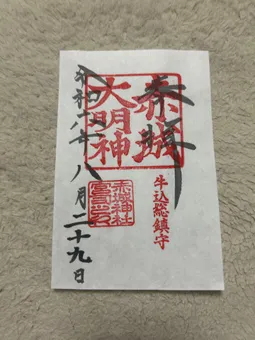 奉拝
赤城
大明神
牛込総鎮守
赤城神社
令和六年八月二十九日